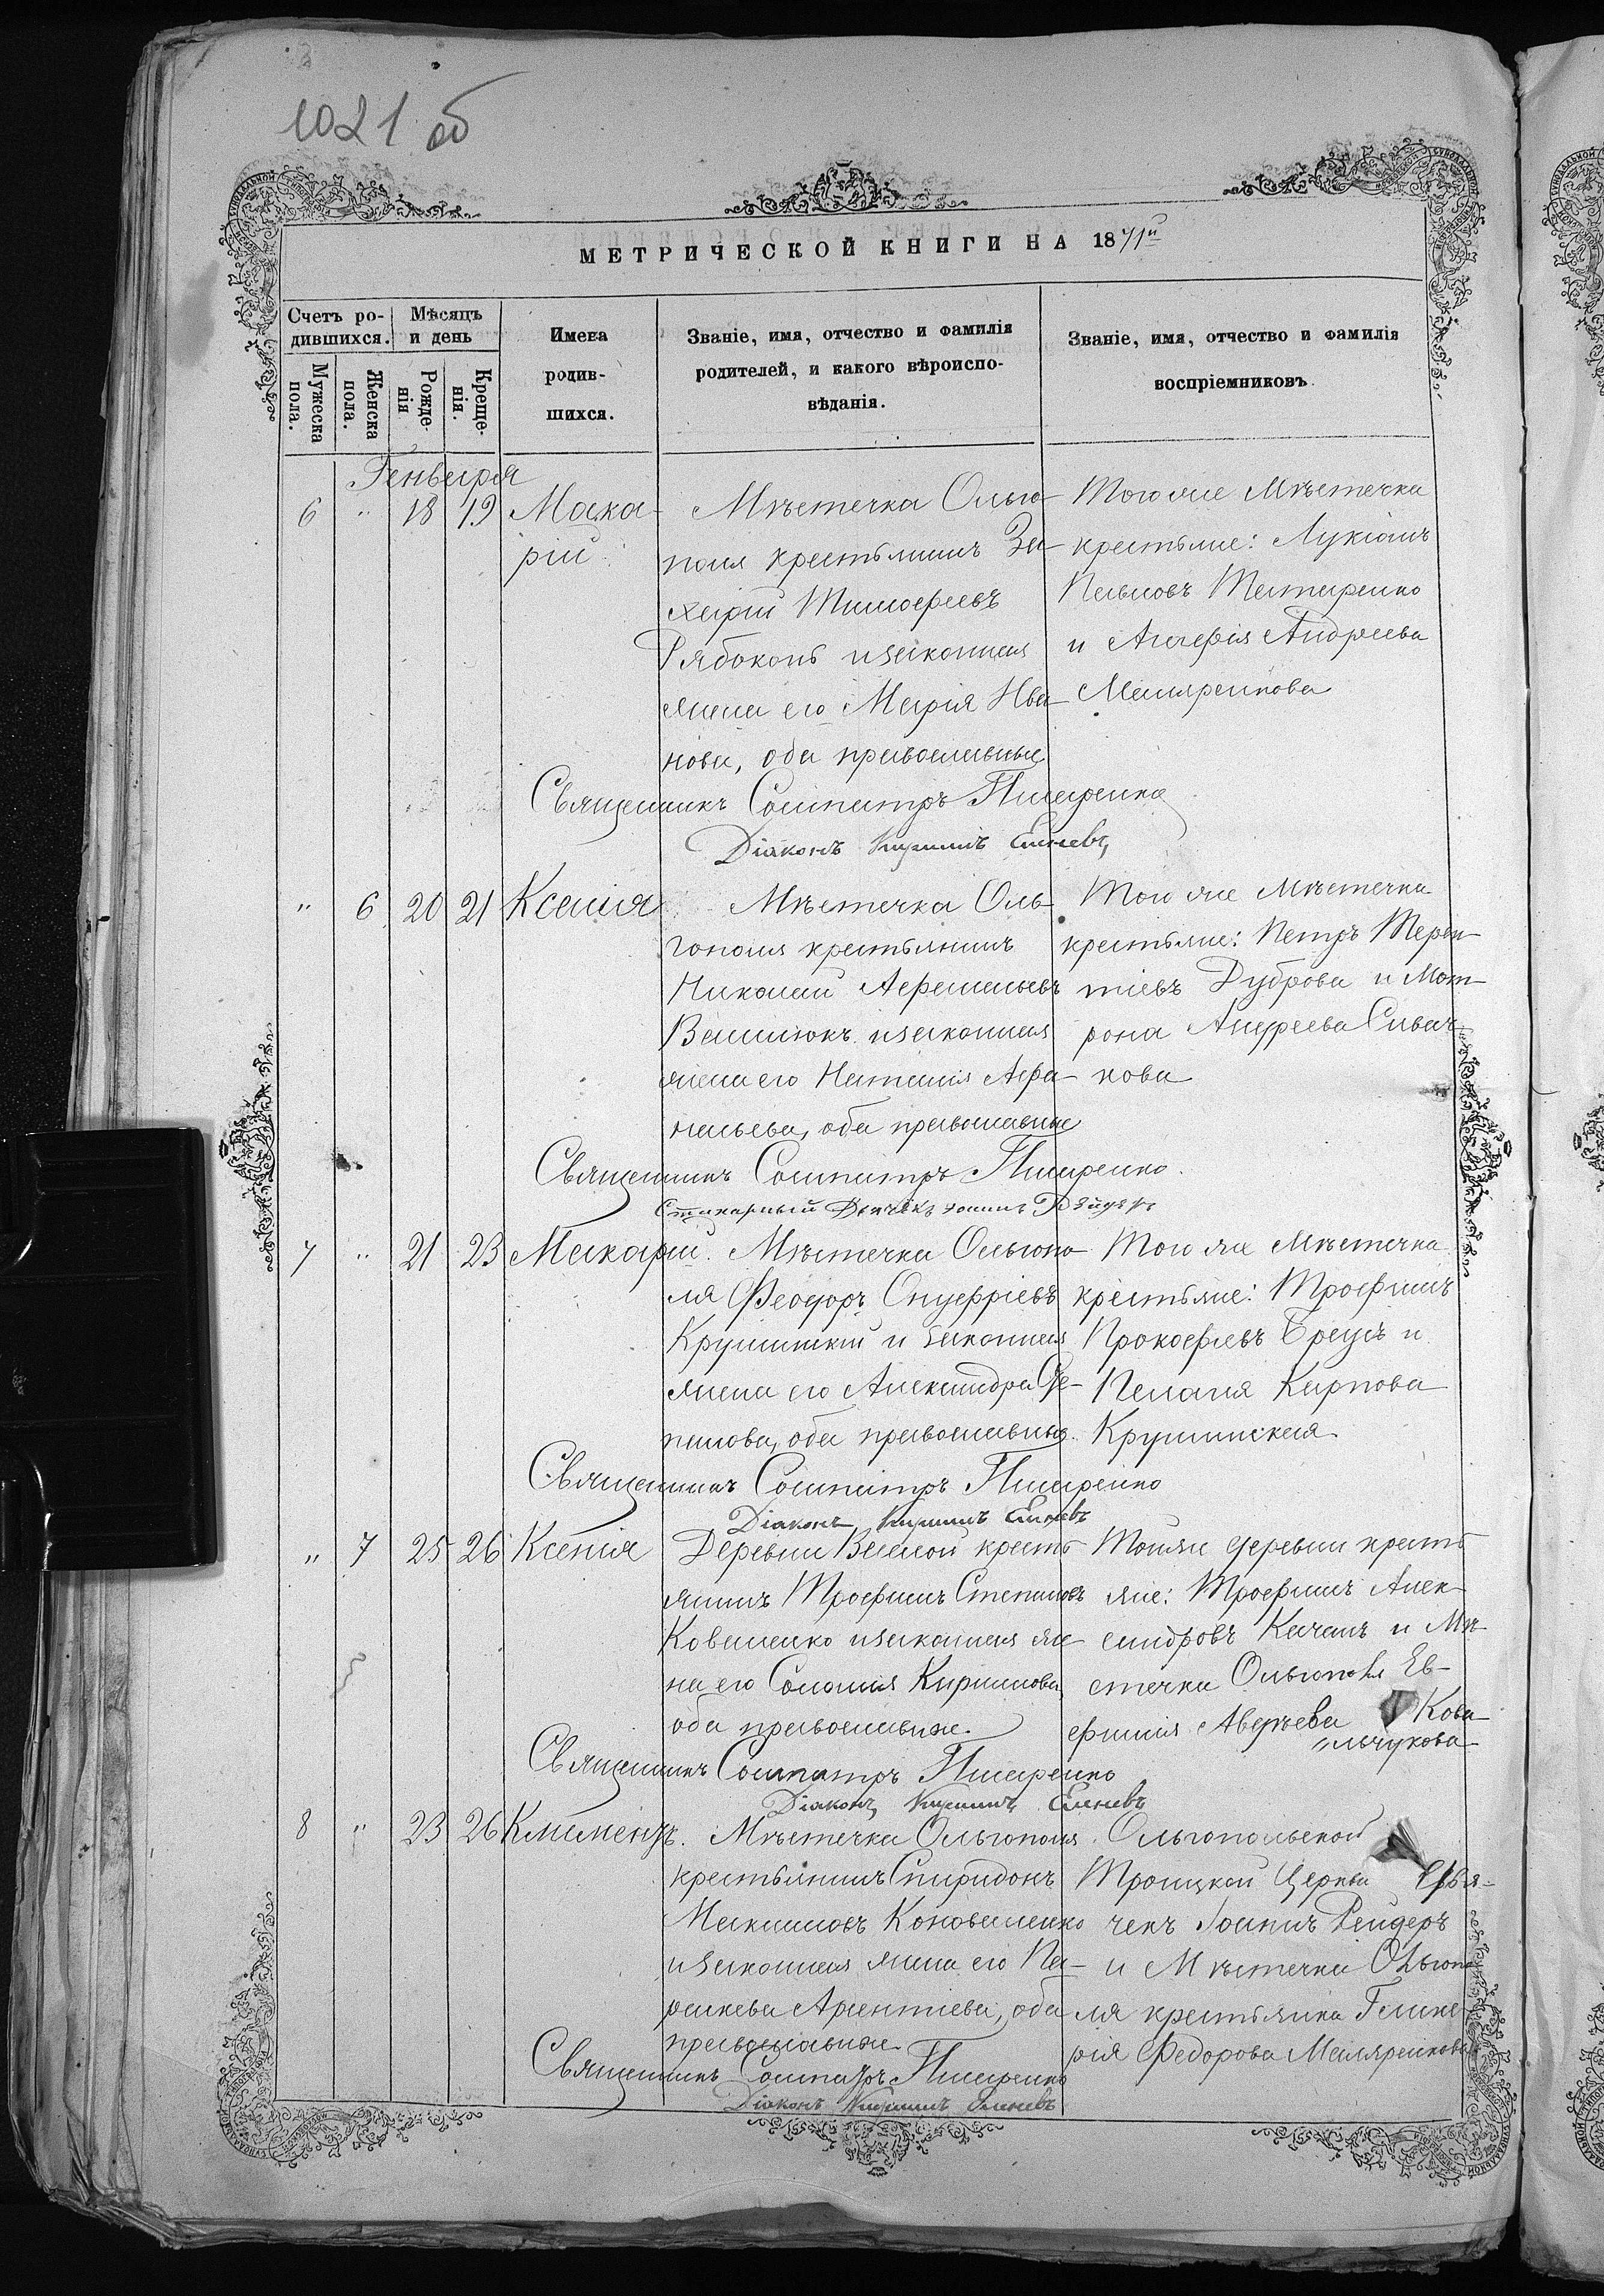 1021 об
МЕТРИЧЕСКОЙ КНИГИ НА 1871й
Счетъ ро-
дившихся.
Мѣсяцъ
и день
Имена
родив-
шихся.
Званіе, имя, отчество и фамилія
родителей, и какого вѣроиспо-
вѣданія.
Званіе, имя, отчество и фамилія
воспріемниковъ.
Мужеска
пола.
Женска
пола.
Рожде-
нія
Креще-
нія.
Генваря
6 " 18 19
Мака-
рій
Мѣстечка Ольго-
поля крестьянинъ За-
харій Тимоѳеевъ
Рябоконь и законная
жена его Марія Ива-
нова, оба православные
Того же Мѣстечка
крестьяне: Лукіанъ
Павловъ Татаренко
и Андреева
Маляренкова
Священникъ Сосипатръ Писаренко
Діаконъ Кириллъ
" 6 20 21
Ксенія
Мѣстечка Оль-
гополя крестьянинъ
Николай Аѳанасьевъ
и законная
жена его Наталія Аѳа-
насьева, оба православные
Того же Мѣстечка
крестьяне: Петръ Терен-
тіевъ Дуброва и Мат-
рона Андреева Сивач-
кова
Священникъ Сосипатръ Писаренко.
Стихарный Дьячекъ Іоаннъ Рейдеръ
7 " 21 23
Макарій.
Мѣстечка Ольгопо-
ля Ѳеодоръ Онуфріевъ
Крушинскій и законная
жена его Александра
оба православные.
Того же Мѣстечка
крестьяне: Трофимъ
Прокофіевъ и
Пелагія Карпова
Крушинская
Священникъ Сосипатръ Писаренко
Діаконъ Кириллъ
" 7 25 26
Ксенія
Деревни Веселой кресть-
янинъ Трофимъ Степановъ
Коваленко и законная же-
на его Соломія Кириллова
оба православные.
Той же деревни кресть-
яне: Трофимъ Алек-
сандровъ Качанъ и Мѣ-
стечка Ольгополя Ев-
фимія Аверьева Кова-
"льчукова
Священникъ Сосипатръ Писаренко
Діаконъ Кириллъ
8 " 23 26
Климентъ.
Мѣстечка Ольгополя
крестьянинъ Спиридонъ
Максимовъ Коноваленко
и законная жена его Па-
раскева Арсентіева, оба
православные
Ольгопольской
Троицкой Церкви
чекъ Іоаннъ Рейдеръ
и Мѣстечка Ольгопо-
ля крестьянка Глике-
рія Федорова Маляренкова
Священникъ Сосипатръ Писаренко
Діаконъ Кириллъ